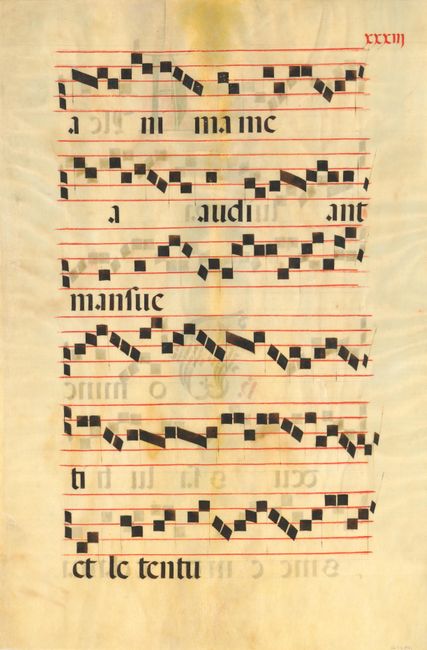 xxxiij
a ni ma me
a audi ant
mansue
ti
et le tentu